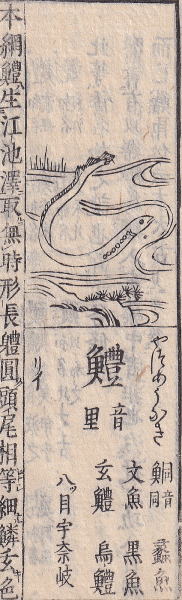 やつめうなぎ
鱧
音里
リイ
鮦 音同 蠡魚
文魚 黒魚
玄鱧 烏鱧
八ツ目宇奈岐
本綱鱧生江池澤取無時形長軆圓頭尾相等細鱗玄色